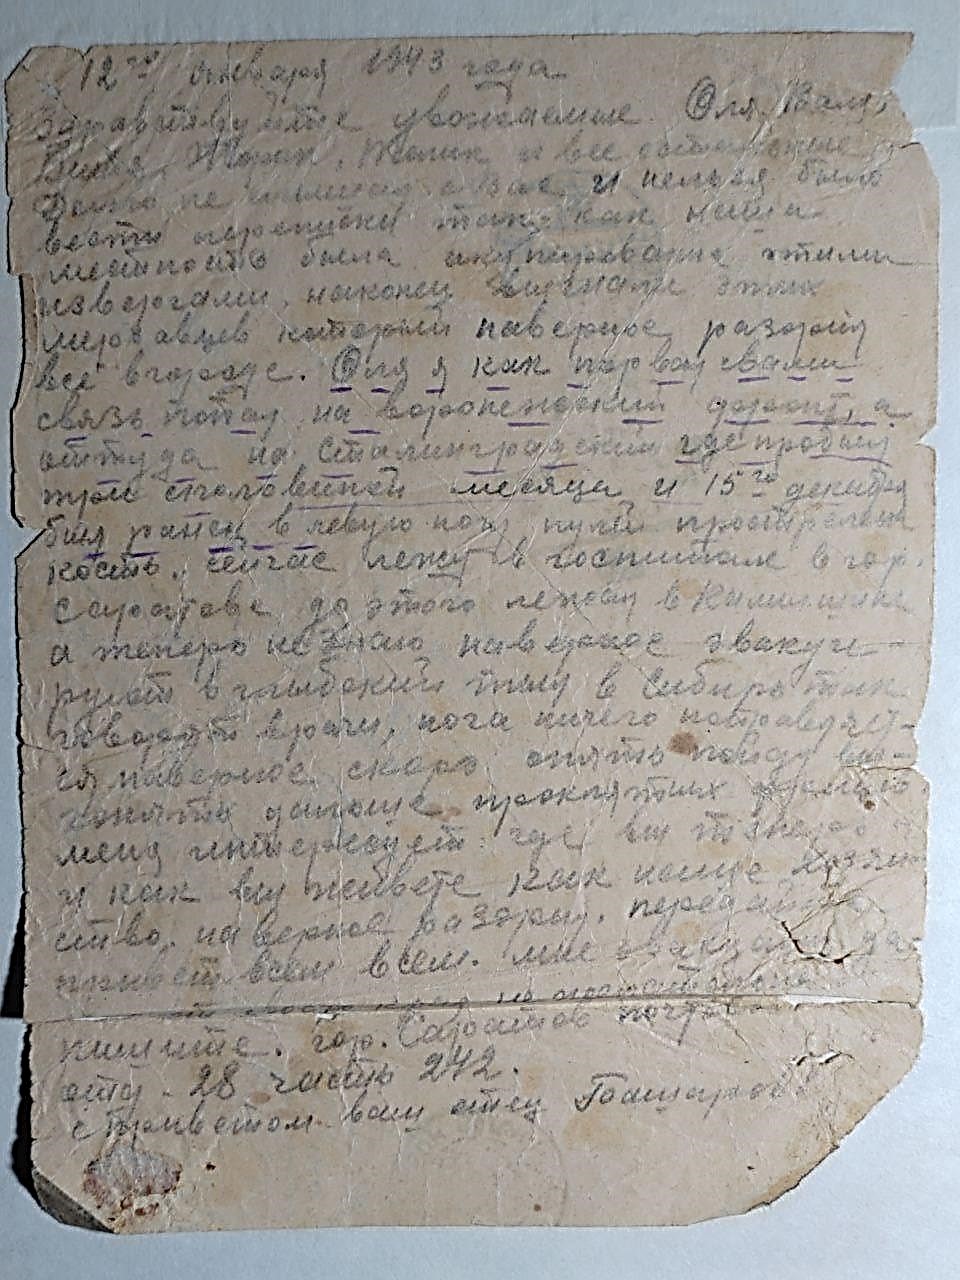 12го января 1943 года
Здравствуйте уважаемые Оля, Валя,
Витя, Жорик, Толик и все остальные
Долго не слышал о вас и нельзя было
вести переписки так-как наша
местность была окупирована этими
извергами. наконец выгнали этих
мерзавцев которий наверное разорил
всё в городе. Оля я как порвал свами
связь попал на воронежский фронт, а
оттуда на Сталинградский где пробыл
три споловиной месяца и 15го декабря
был ранен в левую ногу пулей прострелена
кость. сейчас лежу в госпитале в гор.
Саратове до этого лежал в Камишине
а теперь незнаю наверное эвакуи-
руют в глыбокий тыл в Сибирь так
говорят врачи, нога ничего поправляет-
ся наверное скоро опять пойду вы-
гонять дальше проклятых
меня интересует где вы теперь
и как вы живёте как наше хозяй-
ство. наверное разорил. передайте
привет всем всем. мне
пишите. гор. Саратов почтовое
отд. 28 часть 242.
с приветом ваш отец